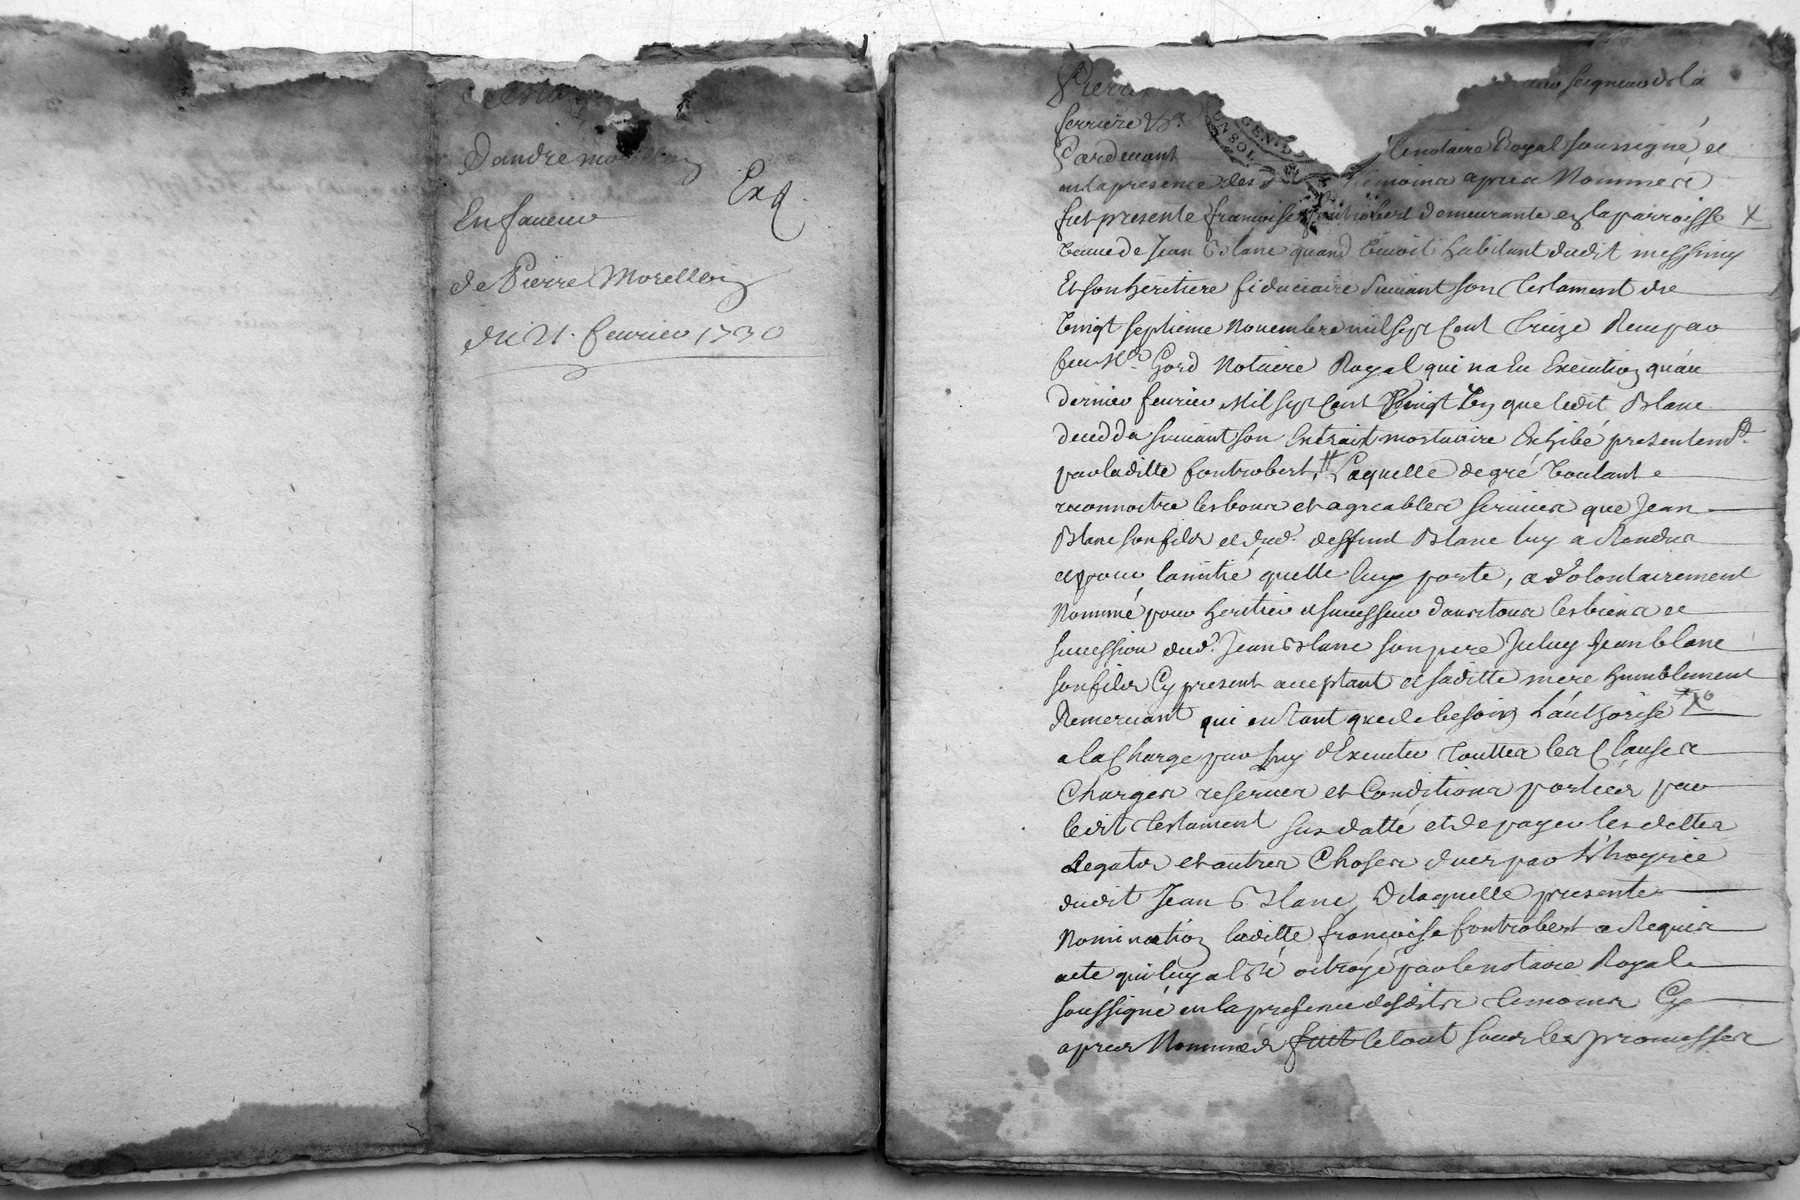 d'andre
Exp.
En faueur
de Pierre Morellon
du 21. feurier 1730
Pierre seigneur de la
ferriere
Pardeuant le notaire Royal soussigné et
en la presence des temoins apres Nommés
fut presente françoise fontrobert demeurante en la parroisse
veuue de Jean Blanc quand viuoit habitant dudit messimy
Et son héritiere fiduciaire suiuant son testament du
vingt septieme Nouembre mil sept cent treize Receu par
feu Me. Gord Notaire Royal qui n'a Eu Execution qu'au
dernier feurier Mil sept cent vingt un que ledit Blanc
deceda suiuant son Extrait mortuaire Exhibé presentemt.
par laditte fontrobert, Laquelle de gré voulant
reconnoitre les bons et agreables seruices que Jean
Blanc son fils et dud. deffunt Blanc luy a Rendus
et pour l'amitié quelle luy porte, a volontairement
Nommé pour heritier et successeur dans tous les biens et
succession dud. Jean Blanc son pere Iceluy Jean blanc
son fils Cy present acceptant et saditte mere humblement
Remerciant qui en tant que de besoin L'authorise
a la Charge par luy d'Executer touttes les Clauses
Charges reserues et Conditions portées par
ledit testament sus datté et de payer les dettes
Legats et autres Choses dues par L'hoyrie
dudit Jean Blanc, De laquelle presente
Nomination laditte françoise fontrobert a Requis
acte qui luy a Eté octroyé par le notaire Royal
soussigné en la presence desdits temoins Cy
apres Nommés fait le tout sous les promesses